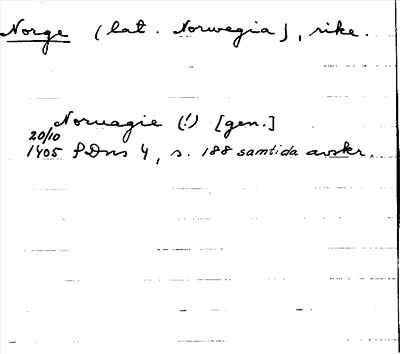 Norge (lat. Norwegia), rike.
Noruagie (!) [gen.]
20/10
1405 SDns 4, s. 188 samtida avskr.